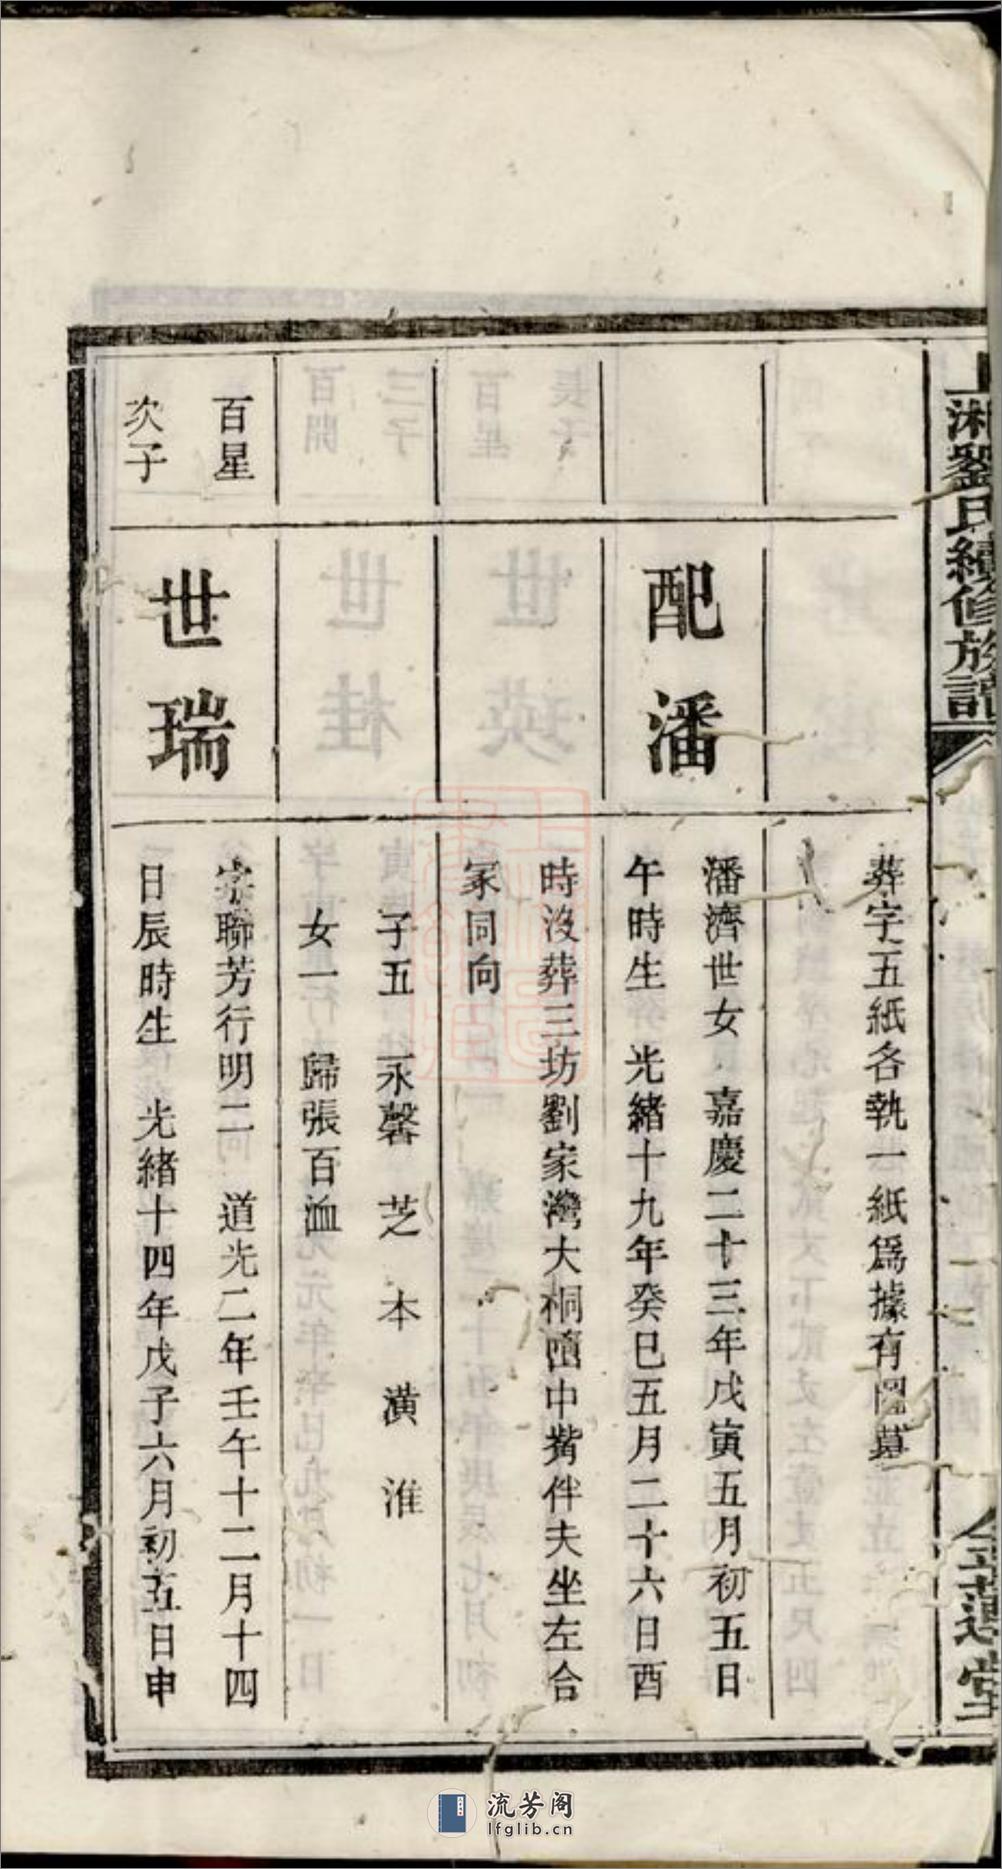 上湘劉氏續修族譜
金蓮堂
葬字五紙各執一紙爲據有圖墓
配潘
潘濟世女 嘉慶二十三年戊寅五月初五日
午時生 光緒十九年癸巳五月二十六日酉
時沒葬三坊劉家灣大桐 中 伴夫坐左合
冢同向
子五 永馨 芝 本 潢 淮
女一 歸張百洫
百星
次子
世瑞
字聯芳行明二 道光二年壬午十二月十四
日辰時生 光緒十四年戊子六月初五日申
流芳阁
lfglib.cn